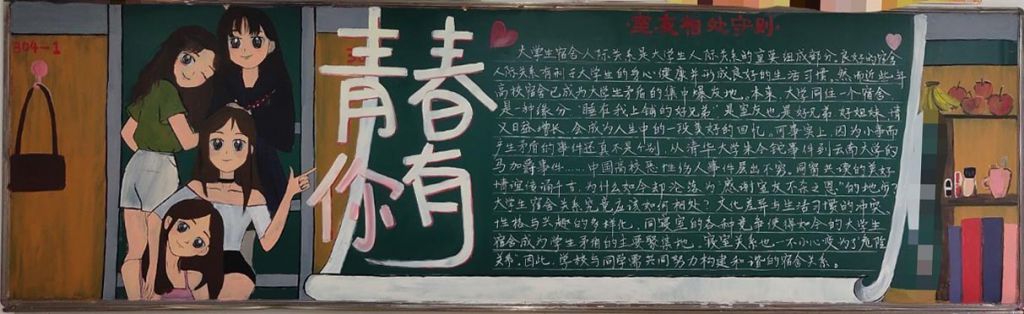 304-1
青春
你有
·室友相处守则·
大学生宿舍人际关系是大学生人际关系的重要组成部分,良好的宿舍
人际关系有利于大学生的身心健康并形成良好的生活习惯。然而近些年
高校宿舍已成为大学生矛盾的集中爆发地。本来,大学同住一个宿舍
是一种缘分“睡在我上铺的好兄弟”是室友也是好兄弟好姐妹,情
义日益增长,会成为人生中的一段美好的回忆。可事实上,因为小事而
产生矛盾的事件还真不是个别,从清华大学朱令铊事件到云南大学的
马加爵事件……中国高校恶性伤人事件层出不穷。同窗共读的美好
情谊传诵千古,为什么如今却沦落为“感谢室友不杀之恩”的地向?
大学生宿舍关系究竟应该如何相处?文化差异与生活习惯的冲突、
性格与兴趣的多样化、同寝室的各种竞争使得如今的大学生
宿舍成为学生矛盾的主要聚集地,寝室关系也一不小心变为了危险
关系。因此,学校与同学需共同努力构建和谐的宿舍关系。